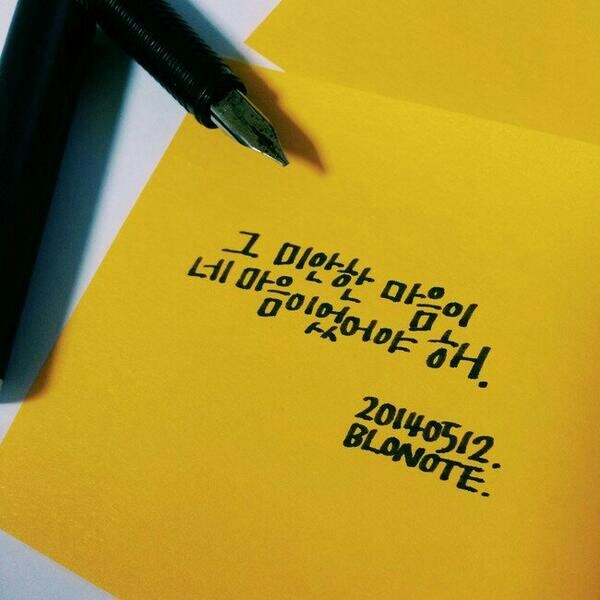 그 미안한 마음이
네 마음이었어야 해.
20140512.
BLONOTE.